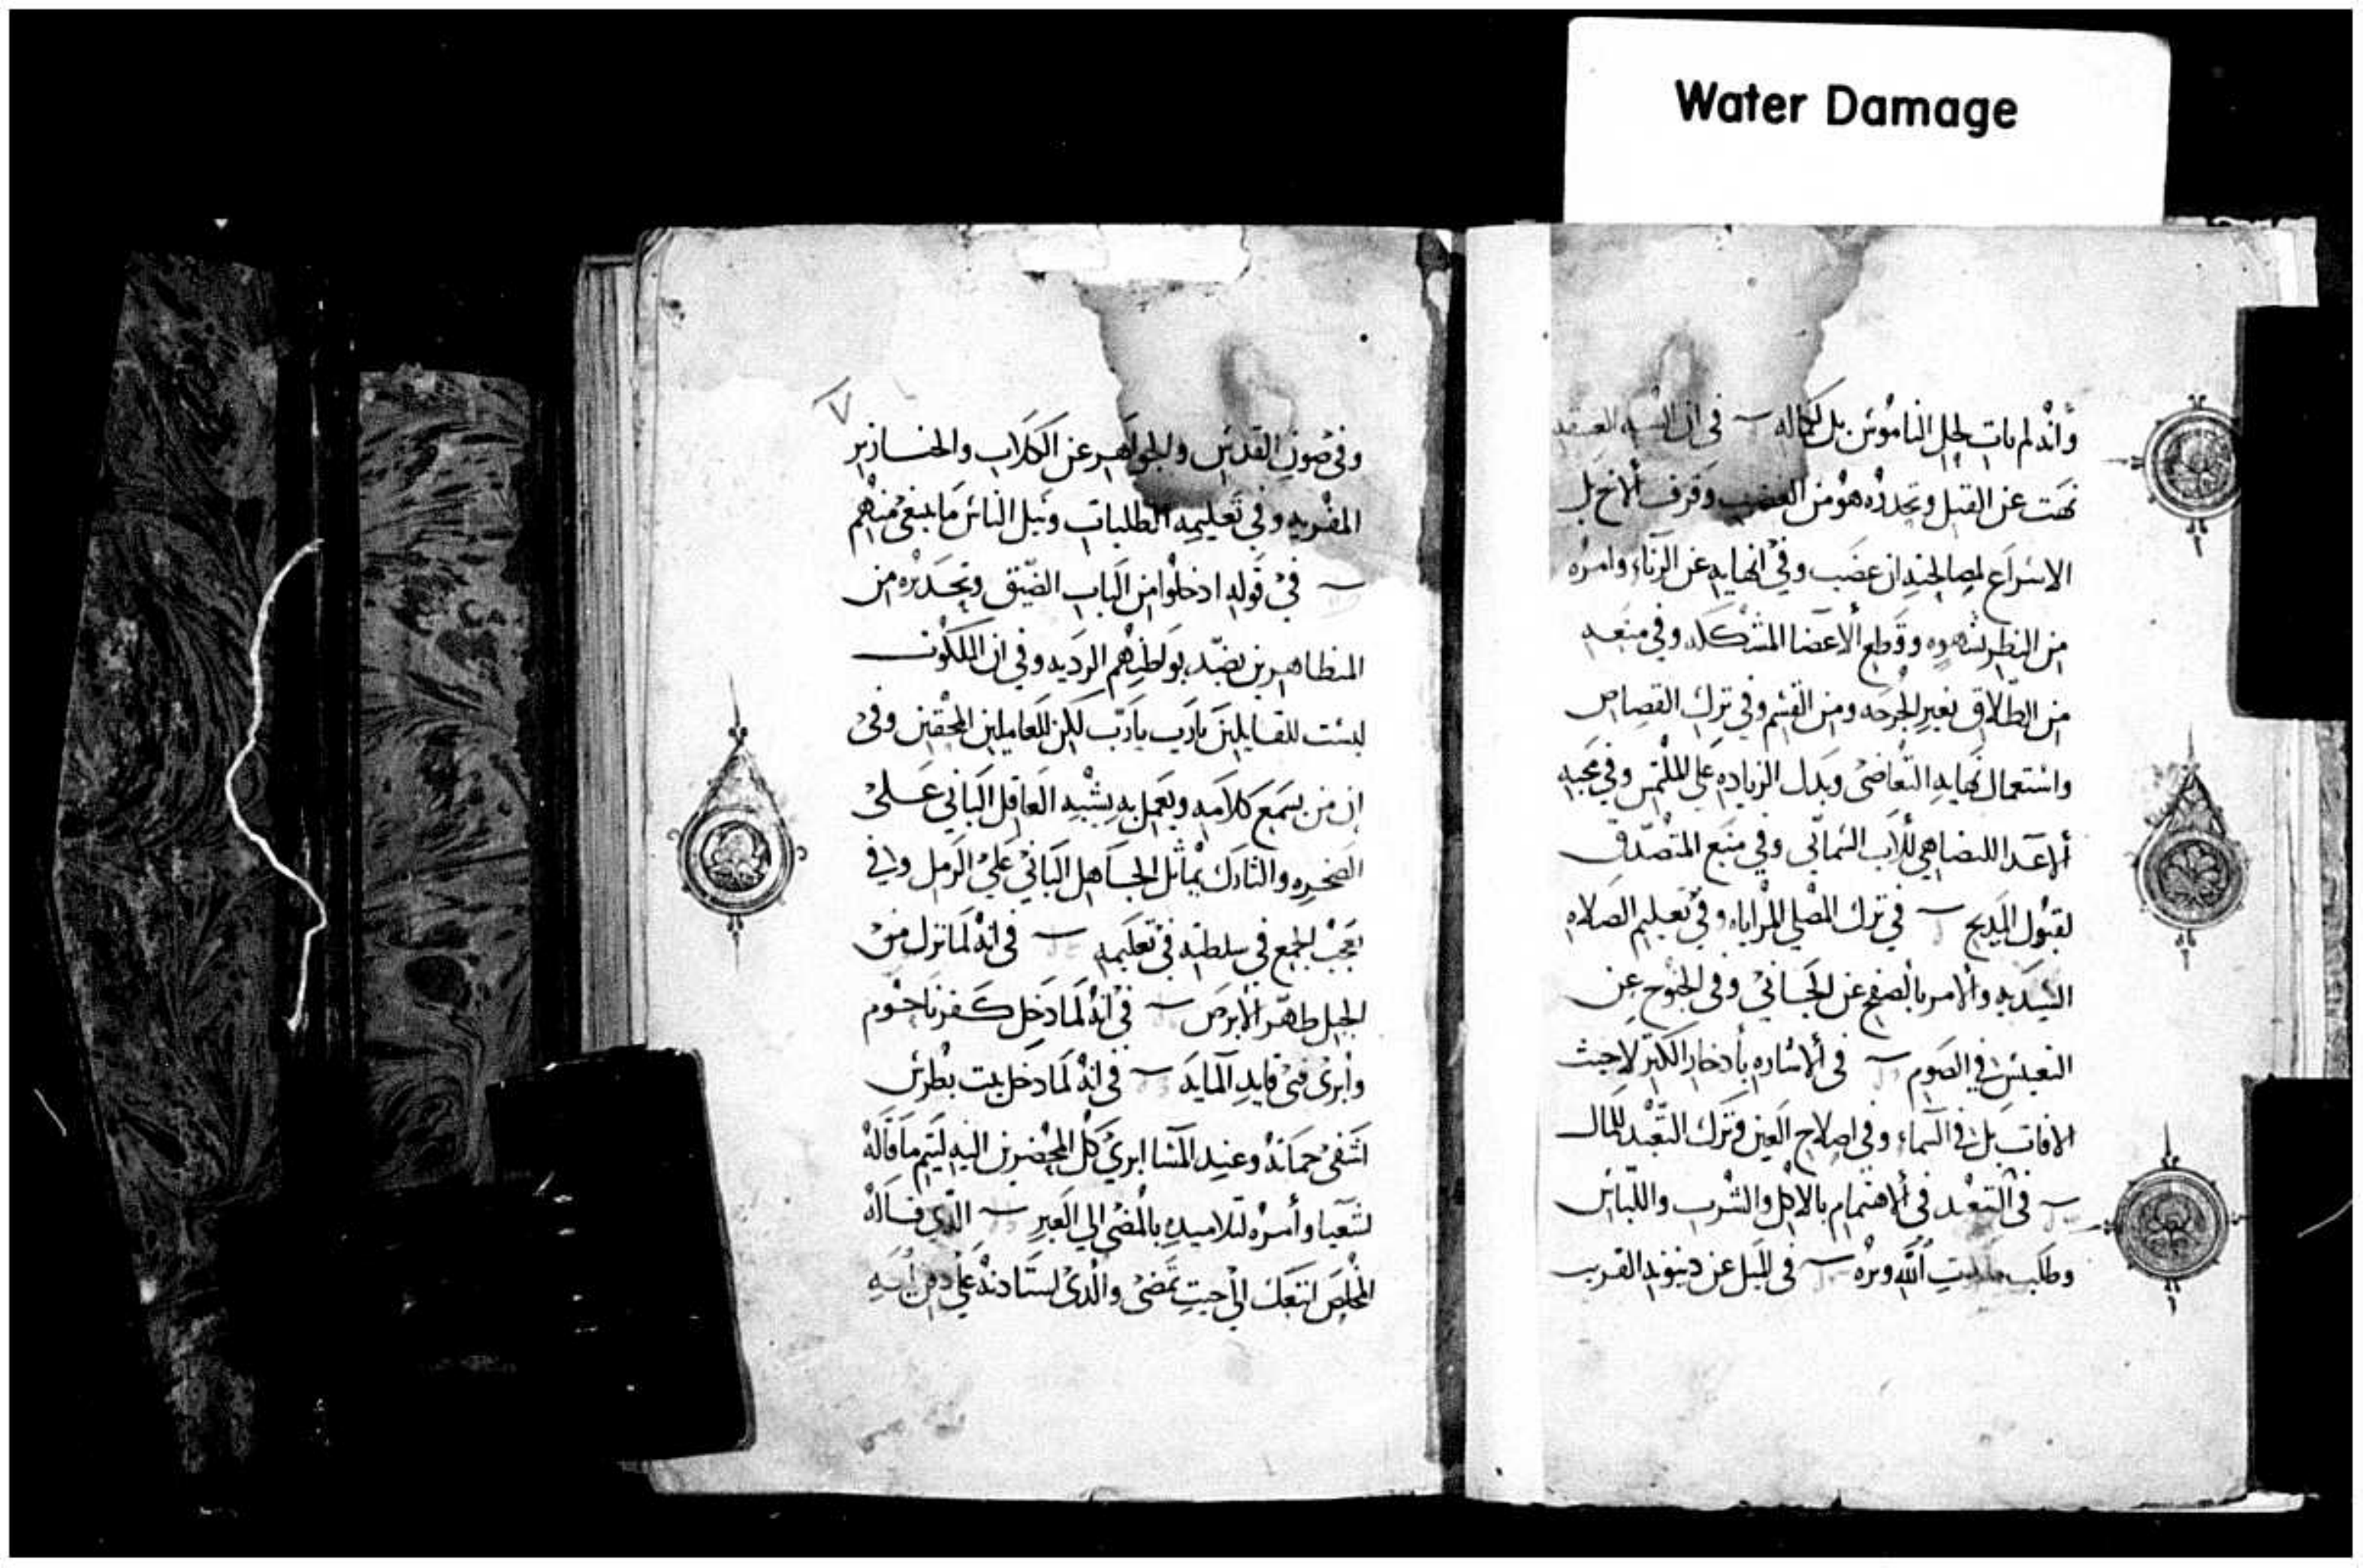 Water Damage
وانه لم يات لحل الناموس بل لكماله في ان
نهت عن القتل وتحدده هو من الغضب وقرف الاخ بل
الاسراع لمصالحته ان غضب وفي انهايه عن الزناء وامره
من النظر بشهوه وقطع الاعضا المشككه وفي منعه
من الطلاق بغير الجرحه ومن القسم وفي ترك القصاص
واستعمال نهايه التغاضي وبدل الزياده على الملتمس وفي محبه
الاعدا للتضاهي للاب السماتي وفي منع المتصدق
لقبول المديح في ترك المصلي للمراياه وفي تعليم الصلاه
السيديه والامر بالصفح عن الجاني وفي الجنوح عن
التعبيس في الصوم في الاشاره بأدخار الكنز لا حيث
الافات بل في السماء وفي اصلاح العين وترك التعبد للمال
في التبعد في الاهتمام بالاكل والشرب واللباس
وطلب ملكوت الله وبره في الميل عن دينونه القريب
٧
وفي صون القدس والجواهر عن الكلاب والخنازير
المفريه وفي تعليمه الطلبات ونيل الناس ما ينبغي منهم
في قوله ادخلوا من الباب الضيق وتحديره من
المتظاهرين بضد بواطنهم الرديه وفي ان الملكوت
ليست للقايلين يارب يارب لكن للعاملين المحقين وفي
ان من يسمع كلامه ويعمل به يشبه العاقل الباني على
الصخره والتارك يماثل الجاهل الباني على الرمل وفي
تعجب الجمع في سلطته في تعليمه في انه لما نزل من
الجبل طهر الابرص في انه لما دخل كفرناحوم
وأبرى فتى قايد المايه في انه لما دخل بيت بطرس
اشفى حماته وعند المسا ابرى كل المحضرين اليه ليتم ما قاله
اشعيا وأمره لتلاميده بالمضي الى العبر الذي قال له
المخلص اتبعك الى حيت تمضي والدي استادنه على دفن ابيه